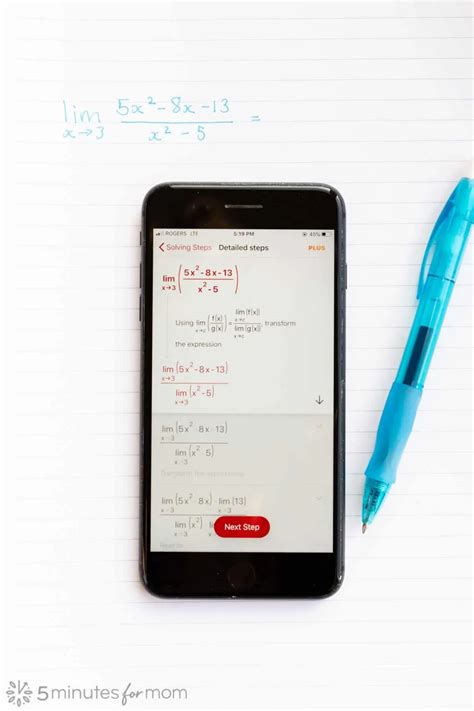 lim x→3 5x² - 8x - 13 / x² - 5 =
ROGERS LTE 5:19 PM 45%
< Solving Steps Detailed steps PLUS
lim x→3 (5x²-8x-13 / x²-5)
Using lim x→c (f(x) / g(x)) = lim x→c (f(x)) / lim x→c (g(x)) transform
the expression
lim x→3 (5x²-8x-13)
lim x→3 (x²-5)
lim x→3 (5x² 8x-13)
lim x→3 (x² 5)
Transform the expressions
lim x→3 (5x² 8x) lim x→3 (13)
lim x→3 (x²) li
Next Step
5 minutes for mom